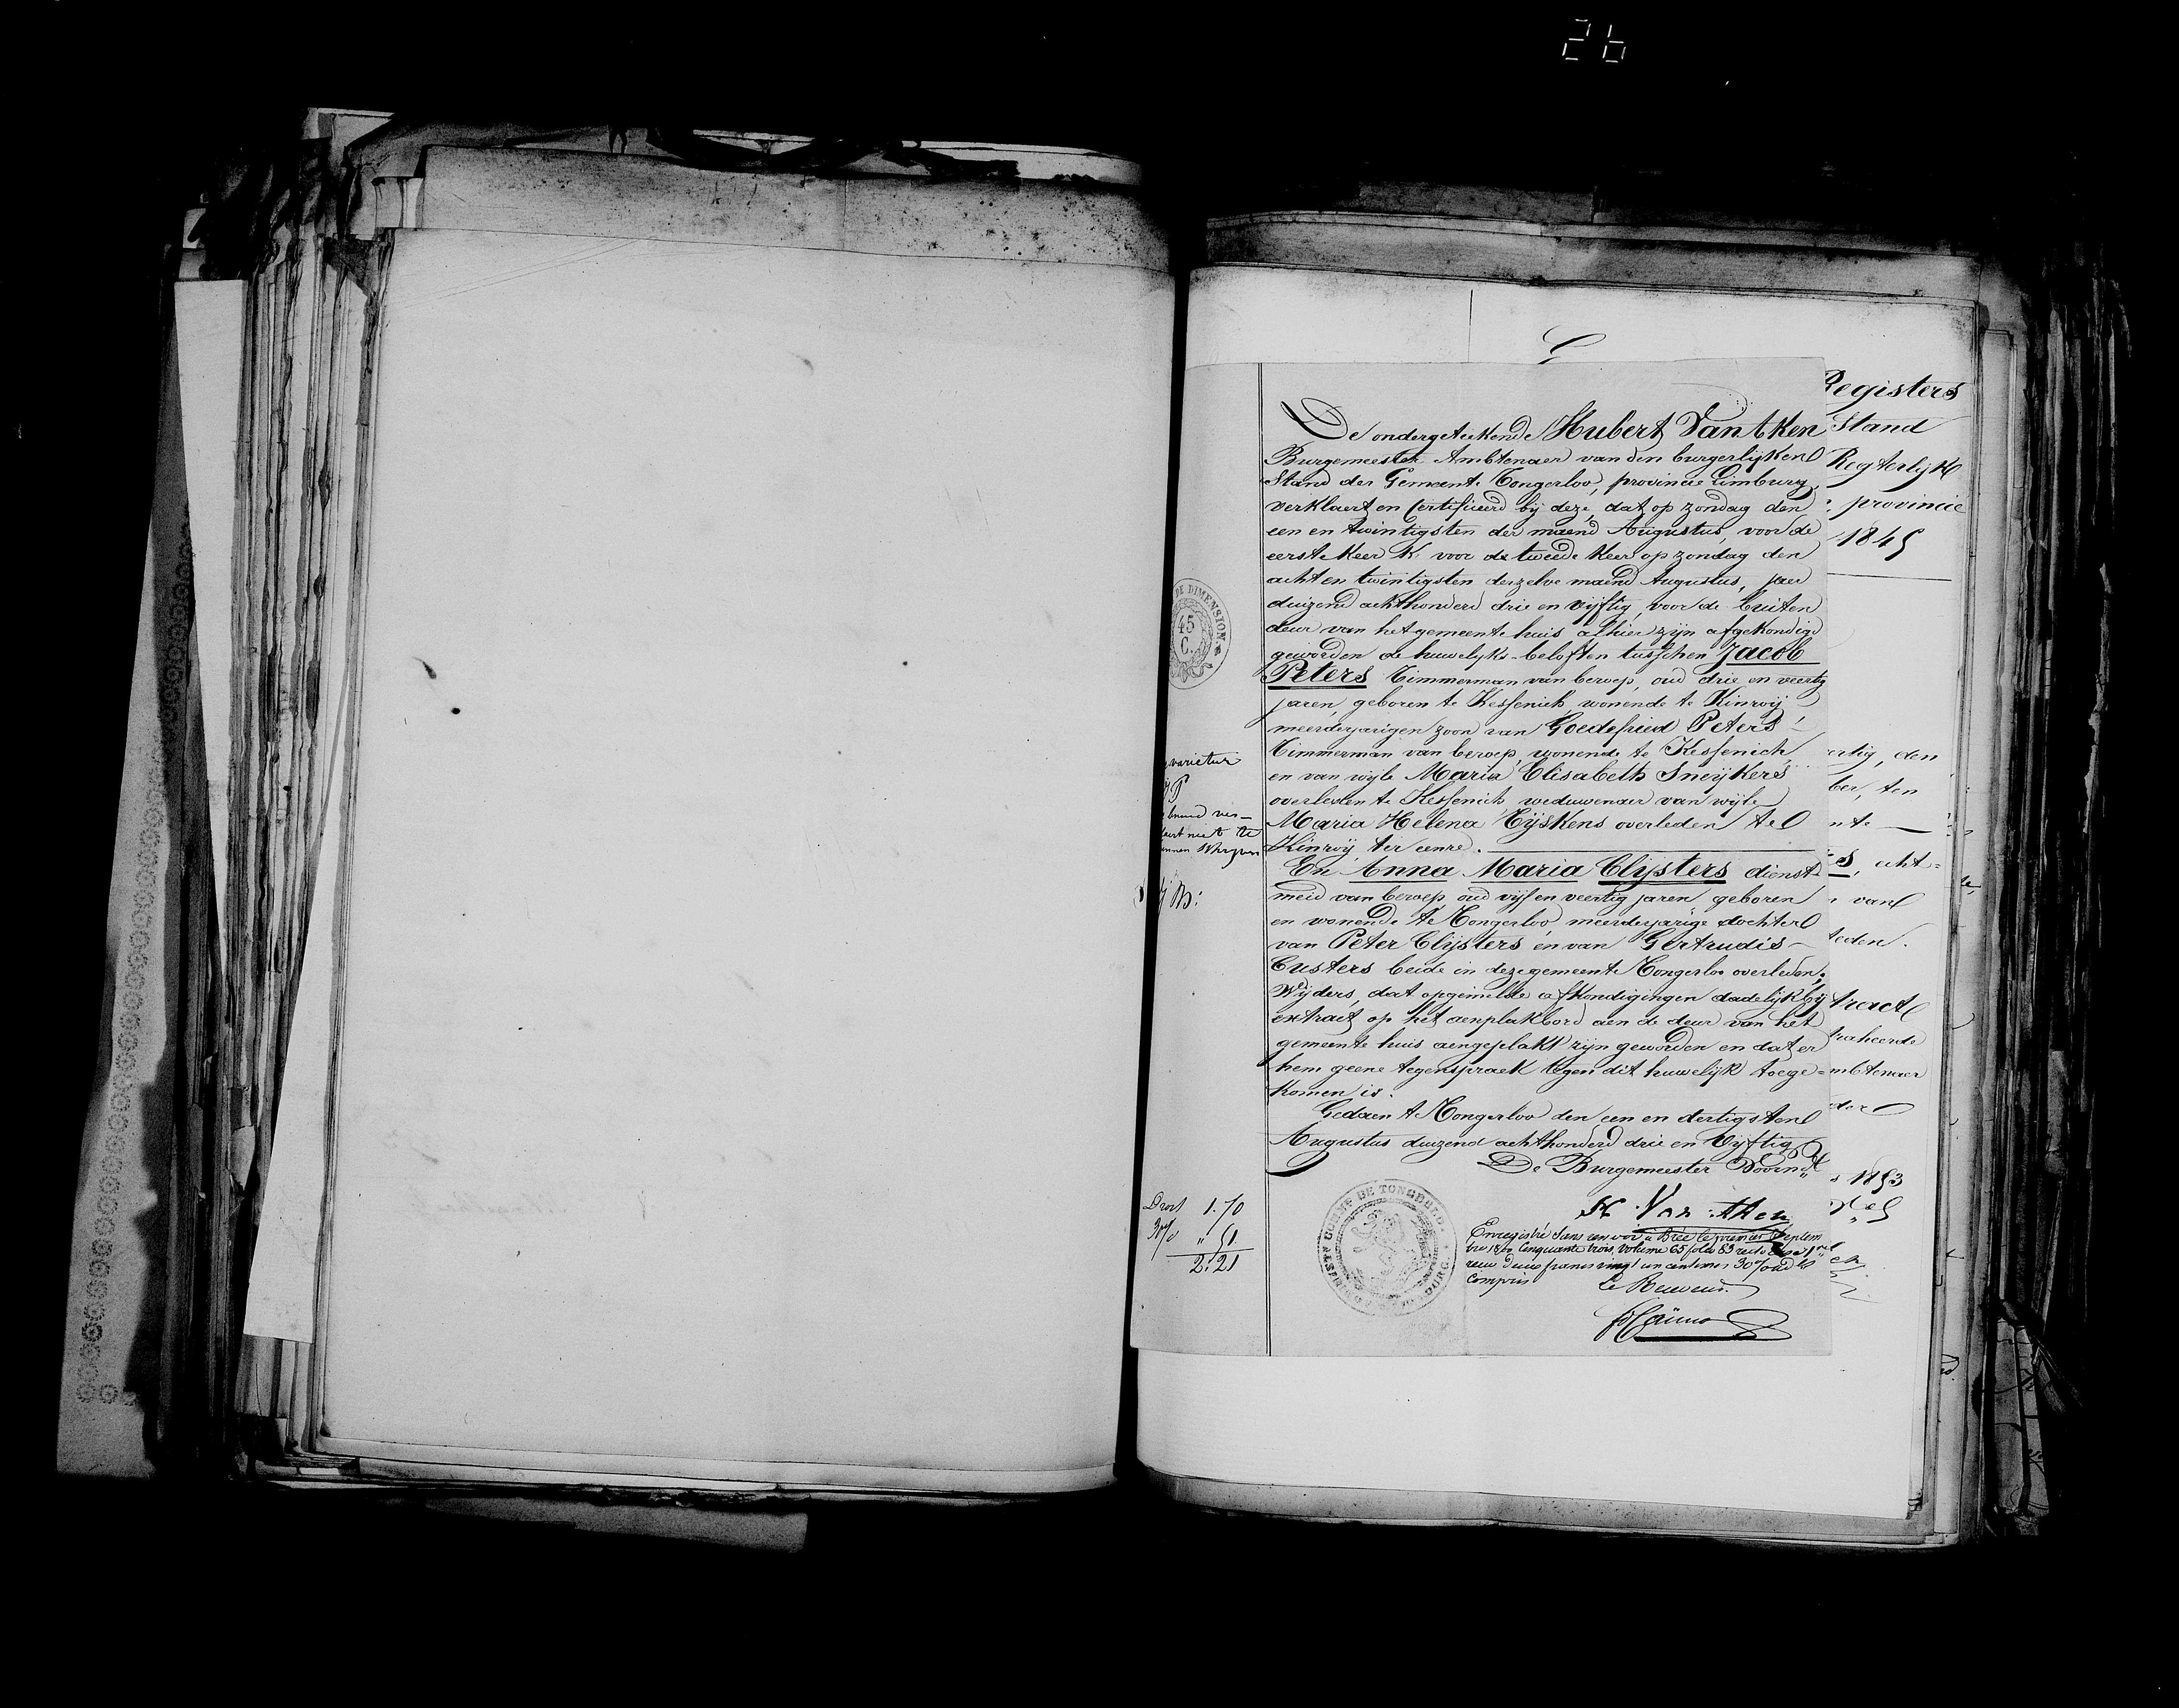 26
De ondergeteekende Hubert Vant Ken
Burgemeester Ambtenaer van den burgerlijken
Stand der Gemeente Tongerloo, provincie Limburg,
verklaert en certifieerd bij deze, dat op zondag den
een en twintigsten der maend Augustus, voor de
eerste keer & voor de tweede keer op zondag den
acht en twintigsten derzelve maend Augustus, jaer
duizend achthonderd drie en vijftig, voor de buiten
deur van het gemeente huis alhier zijn afgekondigd
geworden de huwelijks-beloften tusschen Jacob
Peters Timmerman van beroep, oud drie en veertig
jaren, geboren te Kessenich, wonende te Kinroij
meerderjarigen zoon van Goedefried Peters
Timmerman van beroep, wonende te Kessenich,
en van wijle Maria Elisabeth Sneijkers
overleden te Kessenich, weduwenaer van wijle
Maria Helena Tijskens overleden te
Kinroij ter eenre.
En Anna Maria Clijsters dienst-
meid van beroep, oud vijf en veertig jaren geboren
en wonende te Tongerloo, meerderjarige dochter
van Peter Clijsters en van Gertrudis
Custers beide in deze gemeente Tongerloo overleden;
Wijders, dat opgemelde afkondigingen dadelijk bij
extract op het aenplakbord aen de deur van het
gemeente huis aengeplakt zijn geworden en dat er
hem geene tegenspraek tegen dit huwelijk toege-
komen is.
Gedaen te Tongerloo den een en dertigsten
Augustus duizend achthonderd drie en vijftig
De Burgemeester Voornd
H Van
Enregistré sans renvoi à Brée le premier Septem
bre 18 cent cinquante trois, volume 65 folio 83 recto case 1re
reçu deux francs vingt un centimes 30% add
compris
Le Receveur.
DE DIMENSION.
45
C.
varietur
Droit 1.70
30% " 51
2.21
Registers
Stand
Regterlijk
provincie
1845
ertig, den
ber, ten
nte
acht-
van
leden.
tract
traheerde
mbtenaer
der
1853